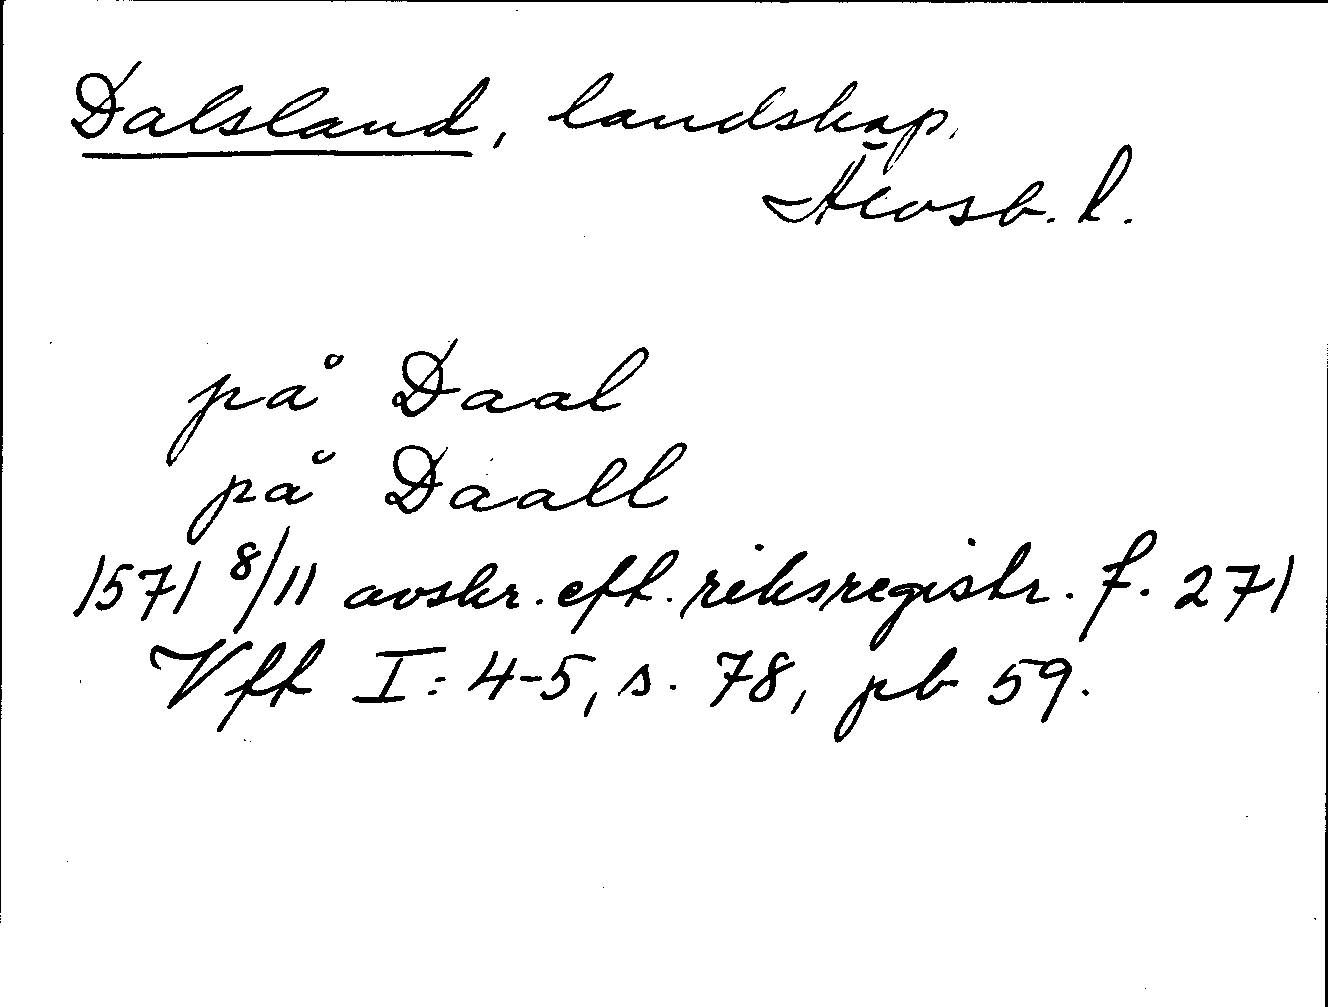 Dalsland, landskap,
Älvsb. l.
på Daal
på Daall
1571 8/11 avskr. eft. riksregistr. f. 271
Vfft I: 4-5, s. 78, pb 59.